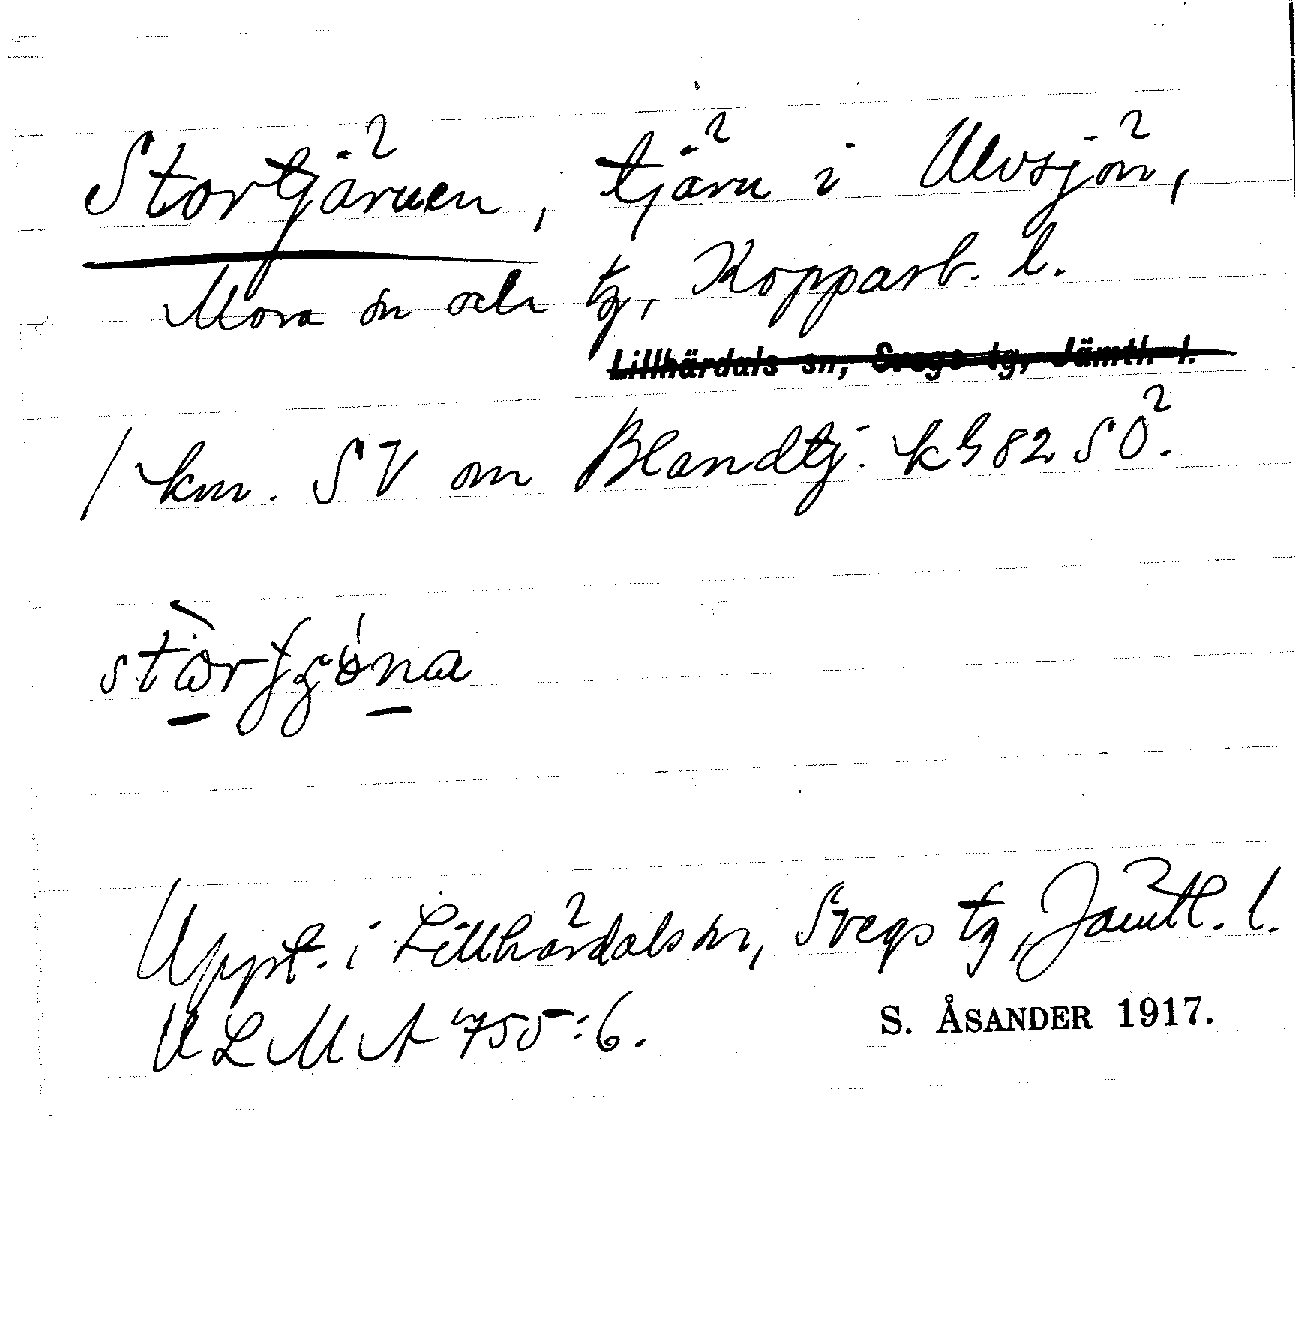 Stortjärnen, tjärn i Ulvsjön,
Mora sn och tg, Kopparb. l.
Lillhärdals sn, Svegs tg, Jämth l.
1 km. SV om Blandtj. kbl 82 SÖ.
Uppt. i Lillhärdals sn, Svegs tg, Jämtl. l.
ULMA 755:6.
S. ÅSANDER 1917.